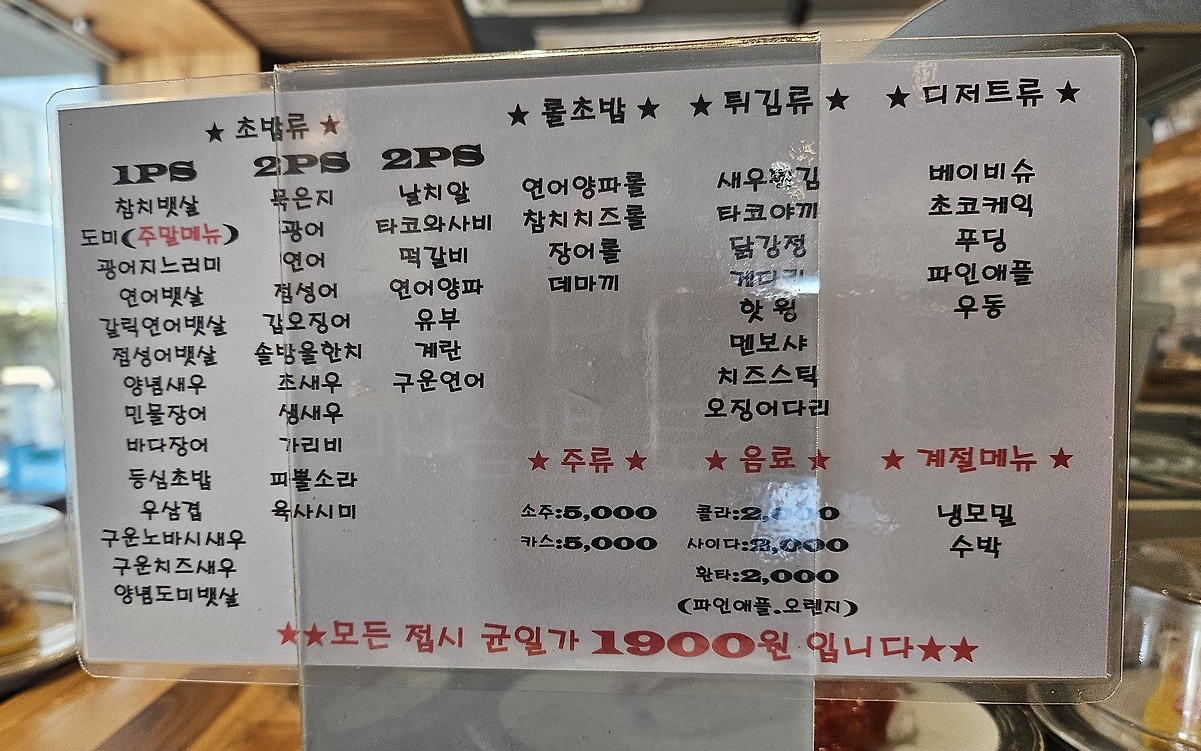 ★ 초밥류 ★
1PS
참치뱃살
도미(주말메뉴)
광어지느러미
연어뱃살
갈릭연어뱃살
점성어뱃살
양념새우
민물장어
바다장어
등심초밥
우삼겹
구운노바시새우
구운치즈새우
양념도미뱃살
2PS
묵은지
광어
연어
점성어
갑오징어
솔방울한치
초새우
생새우
가리비
피뿔소라
육사시미
2PS
날치알
타코와사비
떡갈비
연어양파
유부
계란
구운연어
★ 롤초밥 ★
연어양파롤
참치치즈롤
장어롤
데마끼
★ 튀김류 ★
새우튀김
타코야끼
닭강정
게다리
핫 윙
멘보샤
치즈스틱
오징어다리
★ 디저트류 ★
베이비슈
초코케익
푸딩
파인애플
우동
★ 주류 ★
소주:5,000
카스:5,000
★ 음료 ★
콜라:2,000
사이다:2,000
환타:2,000
(파인애플.오렌지)
★ 계절메뉴 ★
냉모밀
수박
★★모든 접시 균일가 1900원 입니다★★